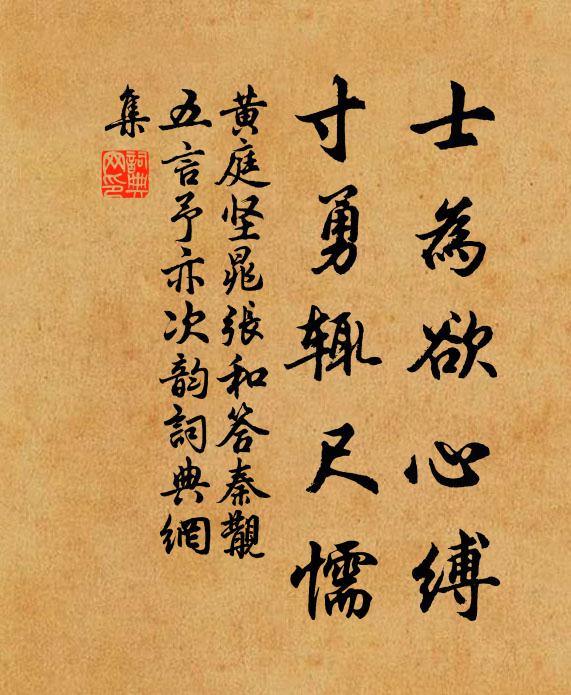 士為欲心縛
寸勇辄尺懦
黄庭坚晁張和答秦觀
五言予亦次韵詞典網
集
詞典
网印